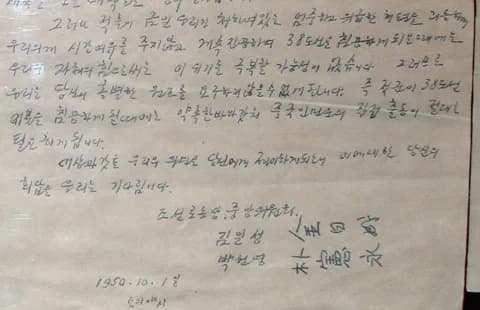 그러나 적들이 금일 우리가 처하여있는 엄중하고 위급한 형편을 리용하여
우리에게 시간여유를 주지않고 계속진공하여 38도선을 침공하게되는때에는
우리의 자체의 힘으로써는 이 위기를 극복할 가능성이 없습니다. 그러므로
우리는 당신의 특별한 원조를 요구하지않을수없게 됩니다. 즉 적군이 38도선
이북을 침공하게될때에는 약속한바와같이 중국인민군의 직접 출동이 절대로
필요하게 됩니다.
이상과같은 우리의 의견을 당신에게 제의하게되니 이에대한 당신의
회답을 우리는 기다립니다.
조선로동당.중앙위원회.
김일성 金日成
박헌영 朴憲永
1950.10.1일